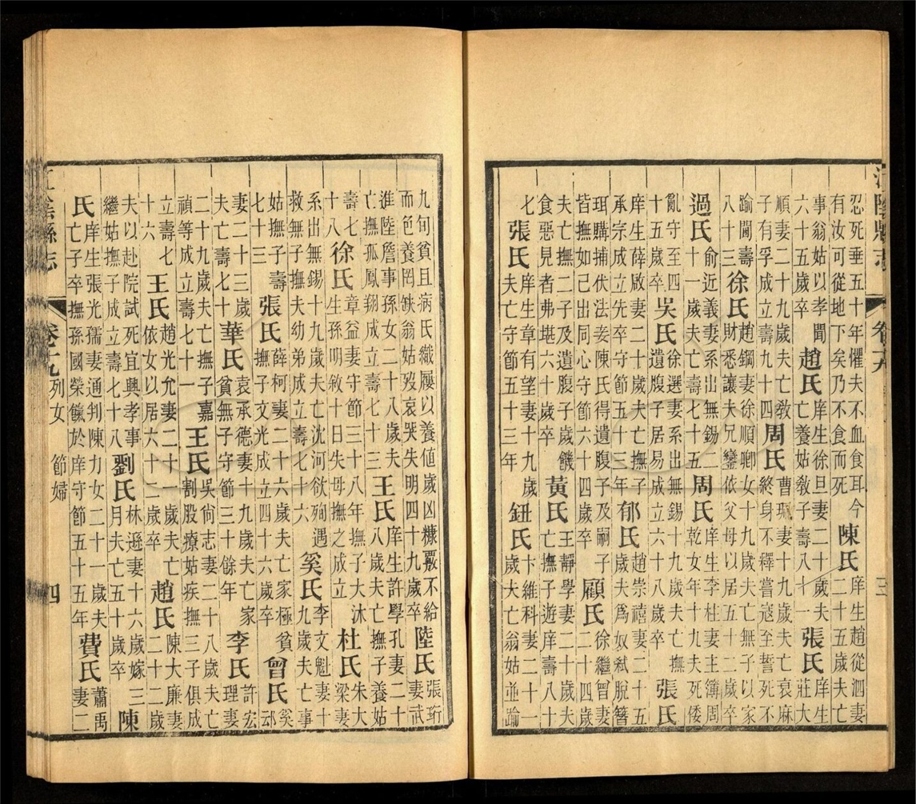 忍死垂五十年懼夫不血食耳今
有汝可從地下矣乃不食而死
陳氏
庠生趙從泗妻
二十五歲夫亡
事翁姑以孝聞
六十五歲卒
趙氏
庠生徐旦妻二十歲夫
亡養姑敎子壽八十一
張氏
順妻二十九歲夫亡敎
子有孚成立壽九十四
周氏
曹珮妻十九歲夫亡衰麻
終身不釋嘗寇至誓死不
踰閫壽
八十三
徐氏
趙鋼妻徐順卿女十九歲夫亡無子以家
財悉讓夫兄鑾依父母以居五十二歲卒
過氏
俞近義妻系出無錫二
十一歲夫亡守節七十五
周氏
庠生李柱妻主簿周
乾女年十九夫死倭
亂守至四
十五歲卒
吳氏
徐選妻系出無錫十九歲夫亡撫
遺腹子居易成立六十八歲卒
張氏
庠生薛啟妻二十一歲夫亡撫子
承宗成立先卒守節五十三年
郁氏
趙崇禧妻二十三
歲夫爲奴弒脫簪
珥購捕伏法妾陳氏得遺腹子及嗣子
皆撫如己出同心守節六十歲卒
顧氏
徐繼冑妻
二十四歲
夫亡撫二子及遺腹子歲饑
食惡見者弗堪六十歲卒
黃氏
王靜學妻二十歲夫
亡撫子遊庠壽八十
七
張氏
庠生章有望妻十九歲
夫亡守節五十三年
鈕氏
卞維科妻二十一
歲夫亡翁姑並踰
江陰縣志
卷十九
三
九旬貧且病氏織屨以養値歲凶糠覈不給
而色養罔缺翁姑歿哀哭失明四十九歲卒
陸氏
張珩
妻武
進陸詹事孫女二十八歲夫
亡撫孤鳳翔成立壽七十三
王氏
庠生許學孔妻二十
八歲夫亡撫子養姑
壽七
十八
徐氏
章益妻守節三十八年撫子大沐
生孫明敘十日失母撫之成立
杜氏
朱大
梁妻
系出無錫十九歲夫亡沈河欲殉遇
救無子撫夫幼弟成立壽七十六
奚氏
李文魁妻十
九歲夫亡事
姑撫子壽
七十三
張氏
薛柯妻二十六歲夫亡家極貧
撫子文光成立四十六歲卒
曾氏
奚
邳
妻二十三歲
夫亡壽七十
華氏
袁承德妻十九歲夫亡家
貧無子守節三十餘年
李氏
許宏
理妻
二十九歲夫亡撫子嘉
禎等成立壽七十一
王氏
吳尙志妻二十八歲夫亡
割股療姑疾撫三子俱成
立壽七
十六
王氏
趙光允妻二十一歲夫亡
依女以居六十二歲卒
趙氏
陳大廉妻
二十二歲
夫以赴院試死宜興孝事
繼姑撫子成立壽七十八
劉氏
林遜妻十六歲嫁三
月夫亡六十歲卒
陳
氏
庠生張光孺妻通判陳力女二十一歲夫
亡子卒撫孫國榮餼於庠守節五十五年
費氏
蕭禹
妻二
江陰縣志
卷十九
列女 節婦
四